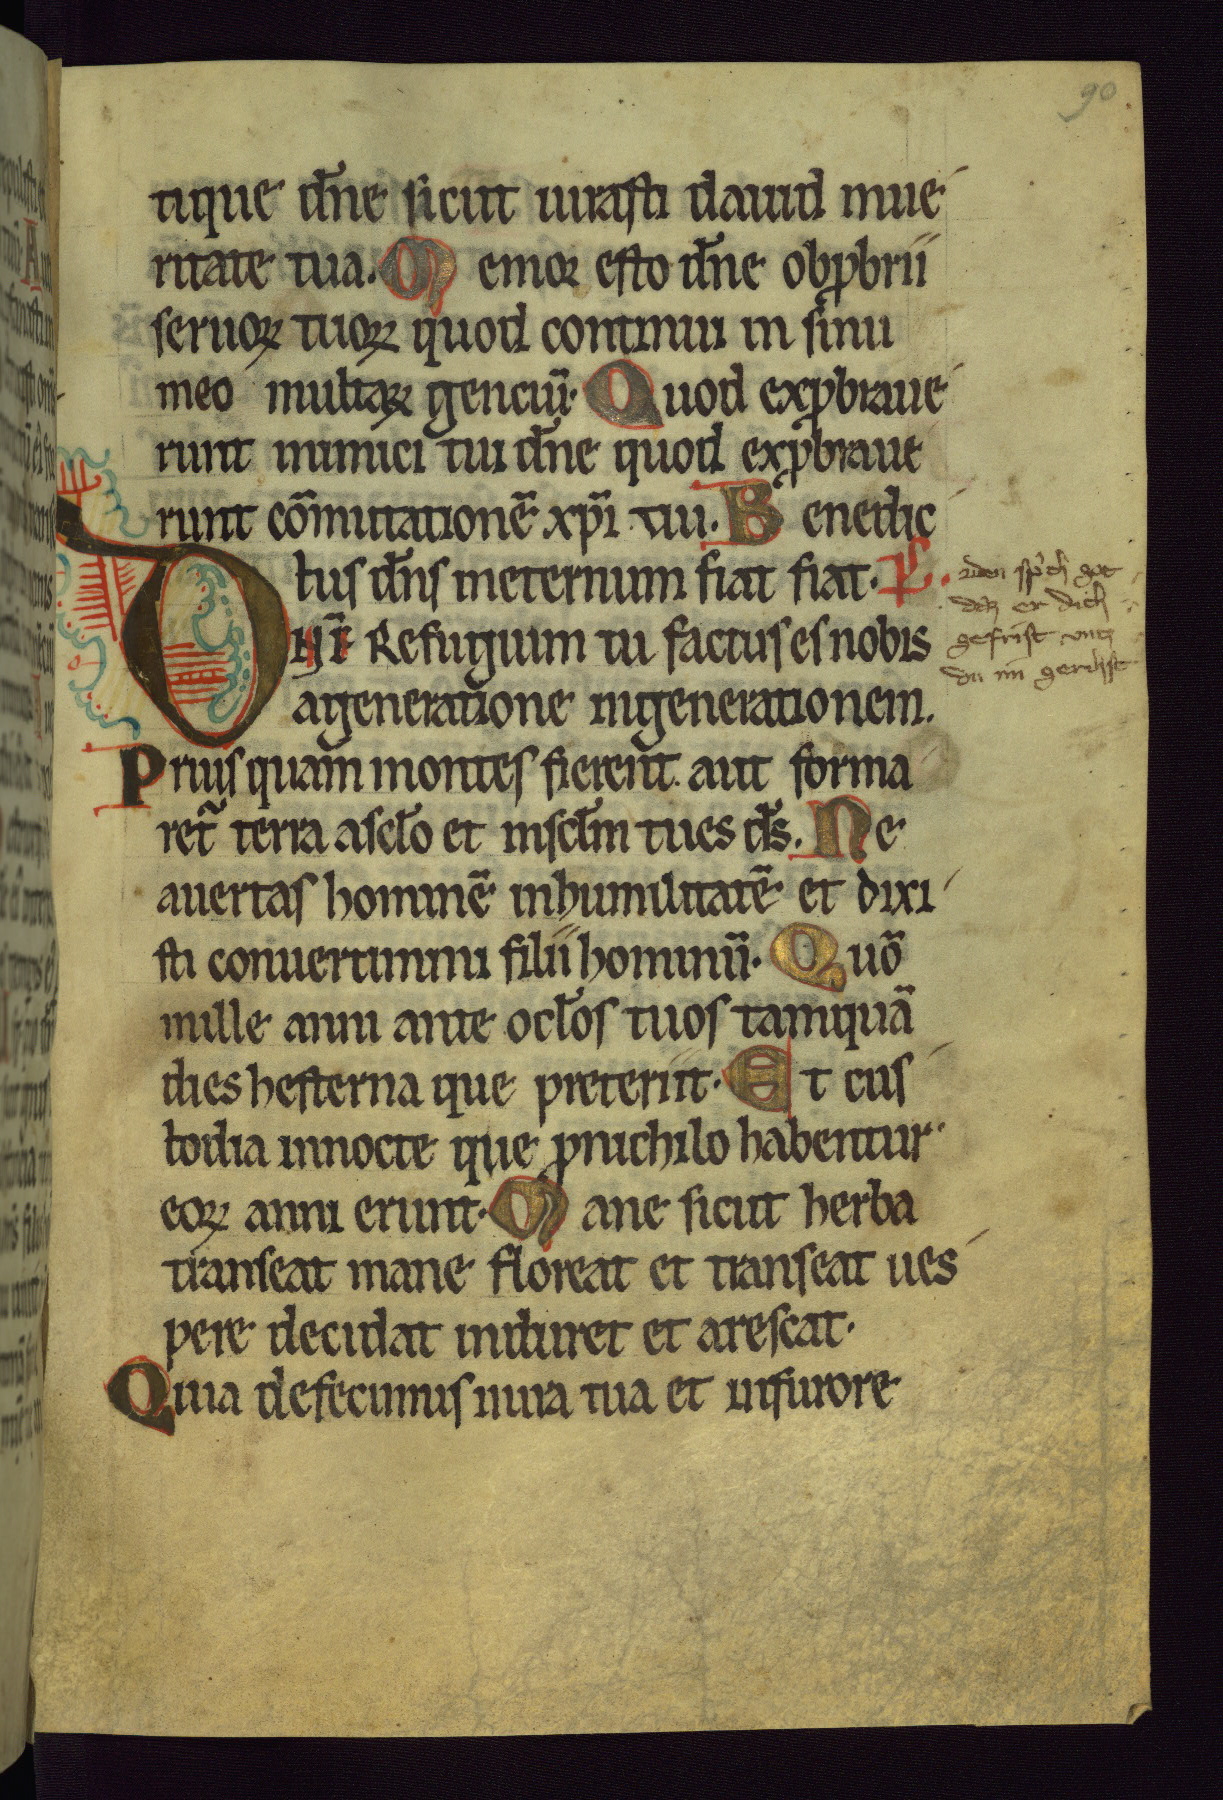 90
tique dn̄e sicut iurasti dauid inue
ritate tua. Memor esto dn̄e obp̱brii
seruoꝝ tuoꝝ quod continui in sinu
meo multaꝝ genciū. Quod exp̱braue
runt inimici tui dn̄e quod exp̱braue
runt cōmutationē xp̄i tui. Benedic
tus dn̄s ineternum fiat fiat. P̄s.
Dn̄e Refugium tu factus es nobis
ageneratione ingenerationem.
Priusquam montes fierent aut forma
ret᷑ terra asclo et insclm tu es ds. Ne
auertas hominē inhumilitatē et dixi
sti conuertimini filii hominū. Quō
mille anni ante oclos tuos tamquā
dies hesterna que preteriit. Et cus
todia innocte que ꝓnichilo habentur
eoꝝ anni erunt. Mane sicut herba
transeat mane floreat et transeat ues
pere decidat induret et arescat.
Quia defecimus inira tua et infurore
got
er dich
gefrist
du